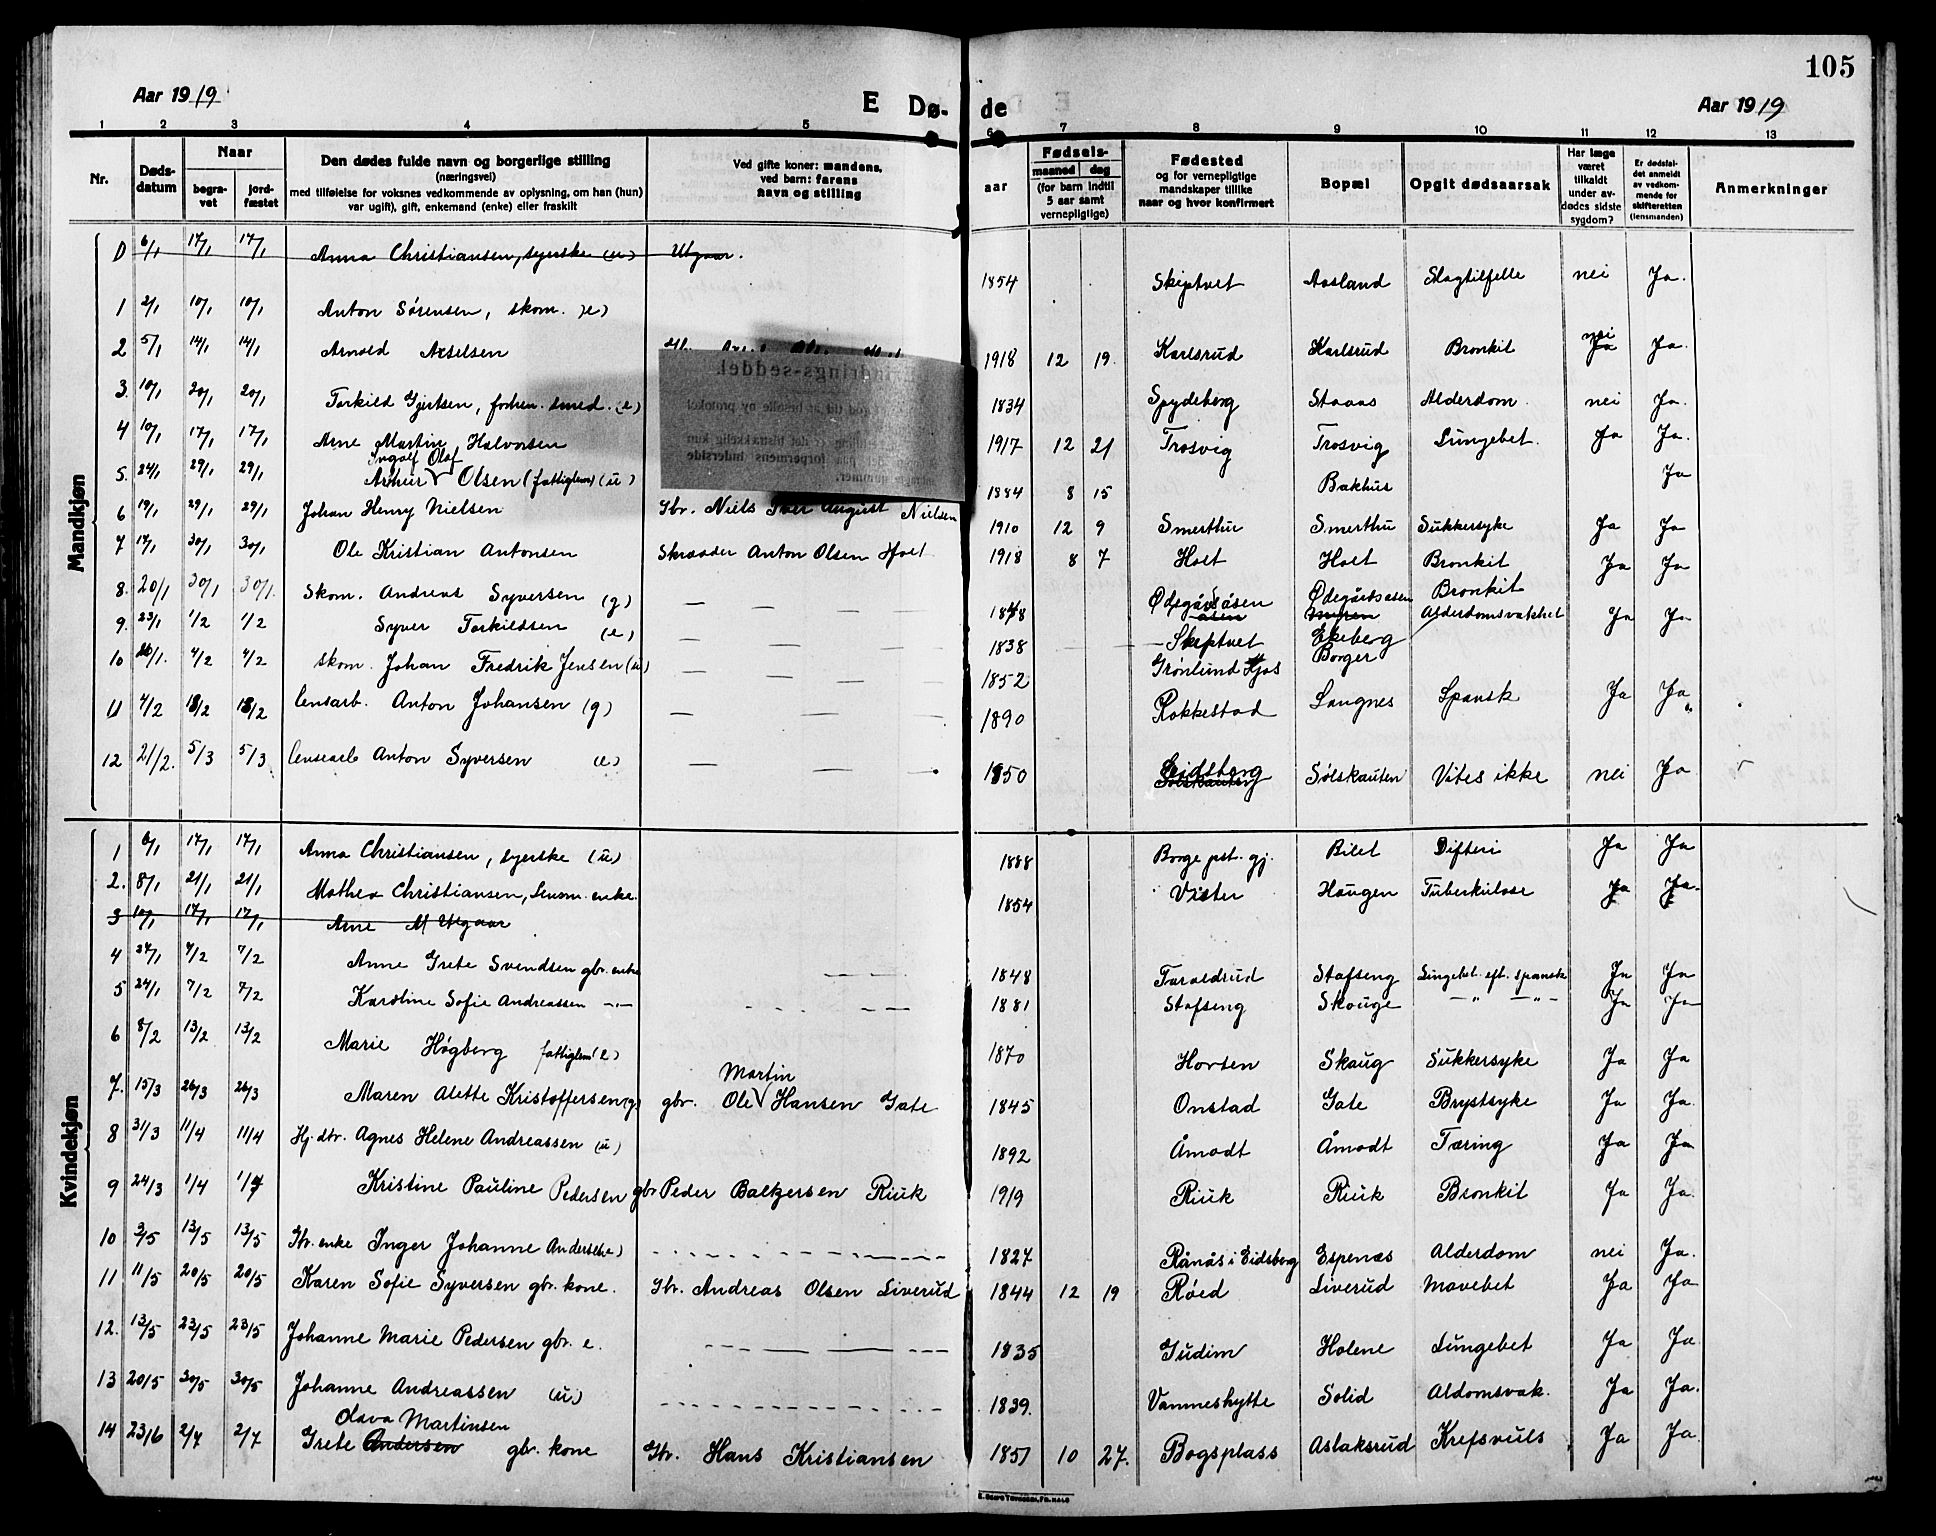 105
Aar 1919 E Dø- de Aar 1919
1 2 3 4 5 6 7 8 9 10 11 12 13
Nr.
Døds-
datum
Naar
begra-
vet
jord-
fæstet
Den dødes fulde navn og borgerlige stilling
(næringsvei)
med tilføielse for voksnes vedkommende av oplysning, om han (hun)
var ugift), gift, enkemand (enke) eller fraskilt
Ved gifte koner: mandens,
ved barn: farens
navn og stilling
aar
Fødsels-
maaned dag
(for barn indtil
5 aar samt
vernepligtige)
Fødested
og for vernepligtige
mandskaper tillike
naar og hvor konfirmert
Bopæl
Opgit dødsaarsak
Har læge
været
tilkaldt
under av-
dødes sidste
sygdom?
Er dødsfal-
det anmeldt
av vedkom-
mende for
skifteretten
(lensmanden)
Anmerkninger
Mandkjøn
6/1 17/1 17/1 Anna Christiansen, syerske (u) Utgaar.
1 2/1 10/1 10/1 Anton Sørensen, skom. (e) 1854 Skiptvet Aasland Slagtilfelle nei Ja.
2 5/1 14/1 14/1 Arnold Axelsen 1918 12 19 Karlsrud Karlsrud Bronkit nei Ja Ja.
3. 10/1 20/1 20/1 Torkild Gjertsen, forhen. smed. (e) 1834 Spydeberg Staaas Alderdom. nei Ja.
4 10/1 17/1 17/1 Arne Martin Halvorsen 1917 12 21 Trosvig Trosvig Lungebet. Ja Ja.
5. 24/1 29/1 29/1 Arthur Ingolf Olaf Olsen (fattiglem) (u) 1884 8 15 Bakhus Ja
6 19/1 29/1 29/1 Johan Henry Nielsen Gbr. Niels Iver August Nielsen 1910 12 9 Smerthu Smerthu Sukkersyke Ja Ja
7 17/1 30/1 30/1 Ole Kristian Antonsen Skrædder Anton Olsen Holt 1918 8 7 Holt Holt Bronkit Ja Ja
8. 20/1 30/1 30/1. Skom. Andreas Syversen (g) — — — 1848 Ødegårdsåsen Ødegårdsåsen Bronkit
9. 23/1 1/2 1/2 Syver Torkildsen (e) — — — 1838 Skiptvet Ekeberg Alderdomsvakhet Ja Ja
10 26/1. 4/2 4/2 skom. Johan Fredrik Jensen (u) — — — 1852 Grønlund Borger
11 4/2 18/2 18/2 Censarb. Anton Johansen (g) — — — 1890 Rakkestad Langnes Spansk Ja Ja
12 21/2. 5/3 5/3 Anton Syversen (e) — — — 1850 Eidsberg Sølskauten Vites ikke nei Ja
Kvindekjøn
1 6/1 17/1 17/1 Anna Christiansen, syerske (u) 1888 Borge pst. gj. Bilet Difteri Ja Ja
2. 8/1 21/1 21/1 Mathea Christiansen, Lensm. enke. 1854 Vister Haugen Tuberkulose Ja Ja.
3 10/1 17/1 17/1 Arne M Utgaar
4 24/1 7/2 7/2 Anne Grete Svendsen gbr. enke — — — 1848 Taraldrud Stafseng Lungebet. eft. spansk Ja Ja
5 24/1 7/2 7/2 Karoline Sofie Andreassen —"— 1881 Stafseng Skouge —"— —"— Ja Ja
6 8/2 13/2 13/2 Marie Høgberg fattiglem (e) 1870 Horten Skaug Sukkersyke Ja Ja
7. 15/3 26/3 26/3 Maren Alette Kristoffersen (g) gbr. Ole Martin Hansen Gate 1845 Onstad Gate Brystsyke Ja Ja.
8 31/3 11/4 11/4 Hj. dtr. Agnes Helene Andreassen (u) 1892 Åmodt Åmodt Tæring Ja Ja
9 24/3 1/4 1/4 Kristine Pauline Pedersen gbr Peder Baltzersen Riuk 1919 Riuk Riuk Bronkit Ja Ja.
10 3/5 13/5 13/5 Gbr. enke Inger Johanne Andersen (e) — — — 1827 Rånås i Eidsberg Espenæs Alderdom nei Ja.
11 11/5 20/5 20/5 Karen Sofie Syversen gbr. kone. Gbr. Andreas Olsen Liverud 1844 12 19 Røed Liverud Mavebet Ja Ja
12. 13/5 23/5 23/5 Johanne Marie Pedersen gbr. e. — — — 1835 Gudim Holene Lungebet Ja Ja.
13 20/5 30/5 30/5 Johanne Andreassen (u) — — — 1839. Vammeshytte Solid Aldomsvak. Ja Ja.
14 23/6 2/7 2/7 Grete Olava Martinsen Andersen gbr. kone Gbr. Hans Kristiansen 1851 10 27. Bogsplass Aslaksrud Kræfsvuls Ja Ja.